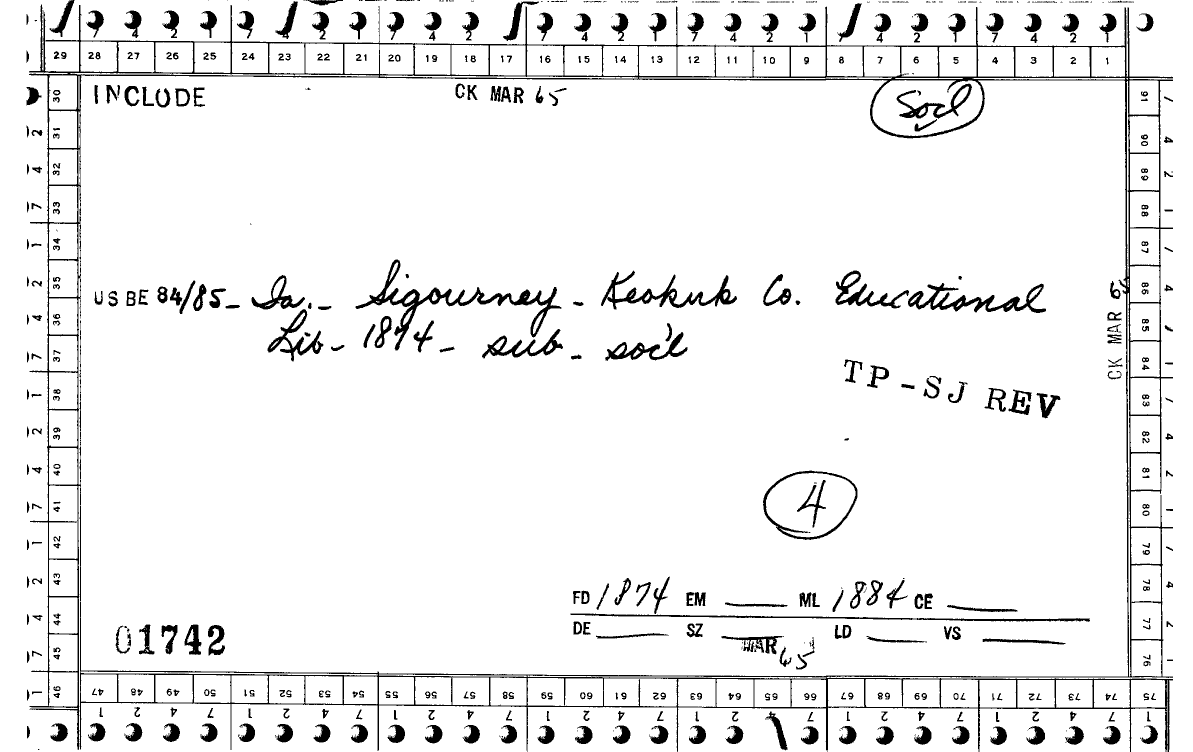 7 4 2 1 7 4 2 1 7 4 2 7 4 2 1 7 4 2 1 7 4 2 1 7 4 2 1
29 28 27 26 25 24 23 22 21 20 19 18 17 16 15 14 13 12 11 10 9 8 7 6 5 4 3 2 1
INCLUDE
CK MAR 65
Soc'l
US BE 84/85 - Ia. - Sigourney - Keokuk Co. Educational
Lib - 1874 - sub - soc'l
TP-SJ REV
CK MAR 65
4
FD 1874 EM ___ ML 1884 CE ___
DE ___ SZ ___ LD ___ VS ___
MAR 65
01742
30 31 32 33 34 35 36 37 38 39 40 41 42 43 44 45 46
91 90 89 88 87 86 85 84 83 82 81 80 79 78 77 76
47 48 49 50 51 52 53 54 55 56 57 58 59 60 61 62 63 64 65 66 67 68 69 70 71 72 73 74 75
1 2 4 7 1 2 4 7 1 2 4 7 1 2 4 7 1 2 4 7 1 2 4 7 1 2 4 7 1